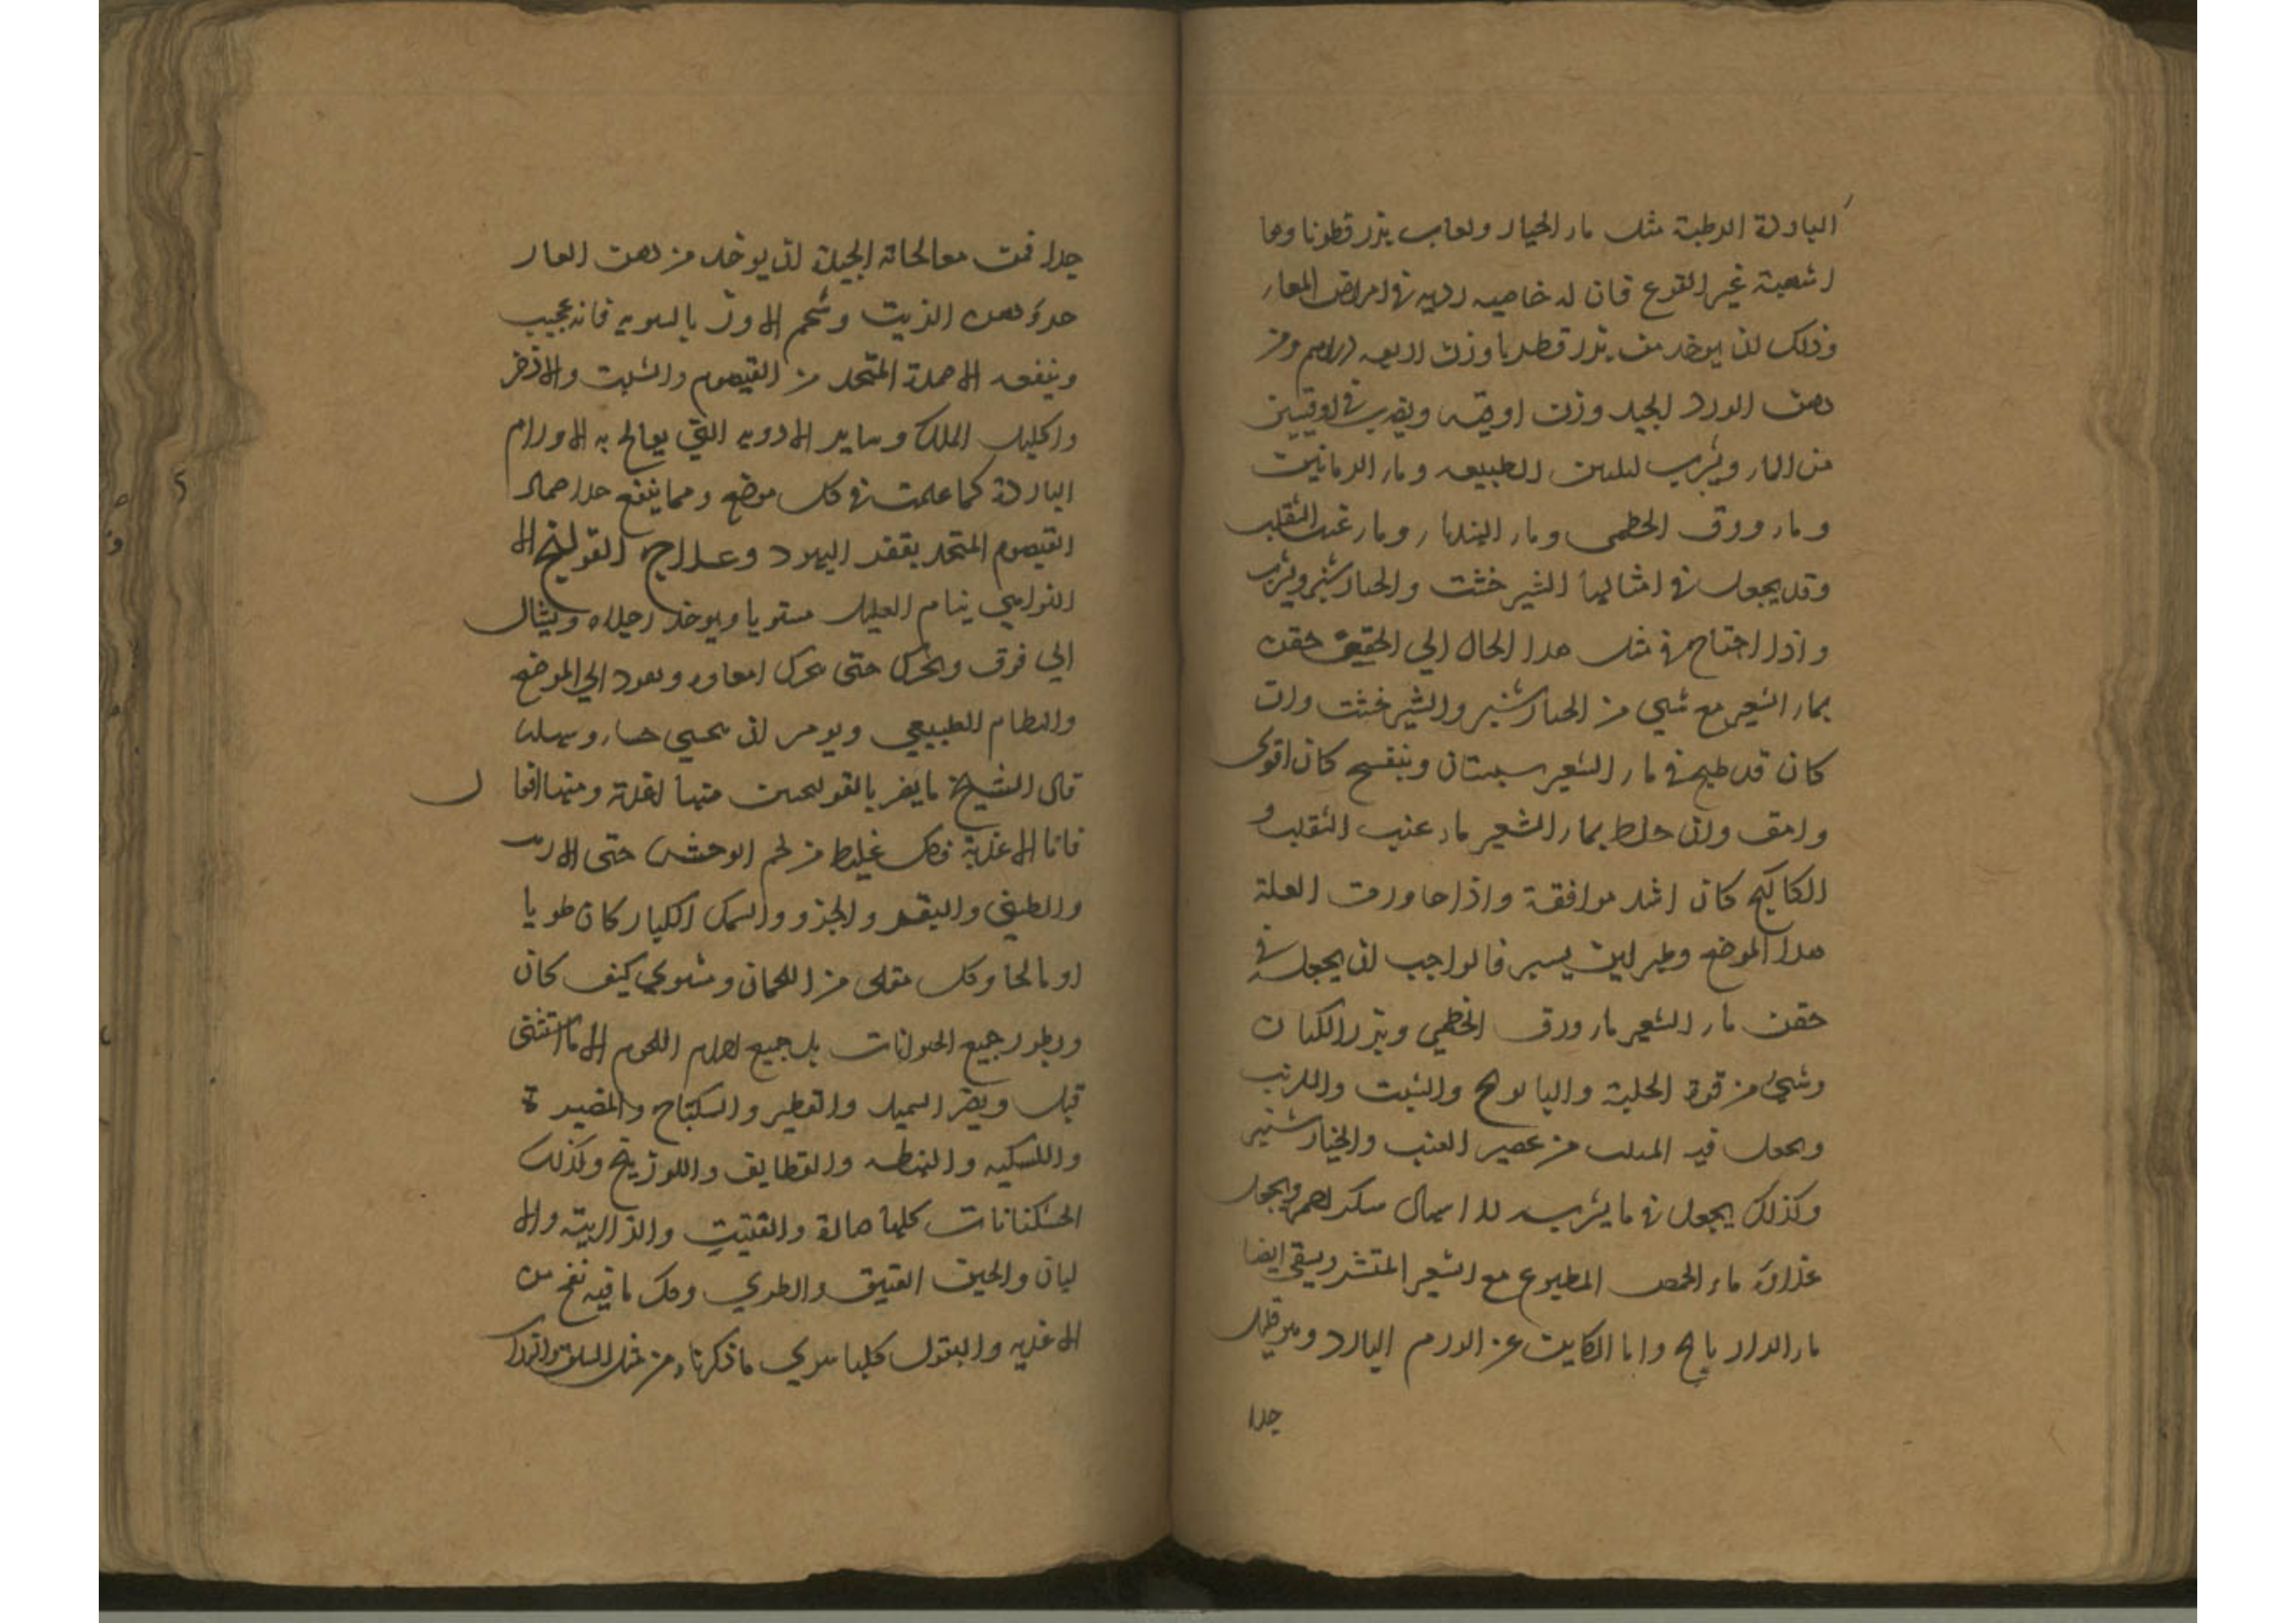 الباردة الرطبة مثل ماء الخيار ولعاب بزر قطونا وما
اشبهه غير القرع فان له خاصيه رديه في امراض المعاء
وذلك ان يوخذ من بزر قطونا وزن اربعه دراهم ومن
دهن الورد الجيد وزن اوقيه ويضرب في اوقيتين
من الماء ويشرب لتليين الطبيعه وماء الرمانين
وماء ورق الخطمى وماء الهندباء وماء عنب الثعلب
وقد يجعل في امثالها الشيرخشت والخيارشنبر ويشرب
واذا احتاج في مثل هذا الحال الي الحقن حقن
بماء الشعير مع شي من الخيارشنبر والشيرخشت وان
كان قد طبخ في ماء الشعير سبستان وبنفسج كان اقوى
وان خلط بماء الشعير ماء عنب الثعلب و
الكاكنج كان اشد موافقة واذا جاوزت العلة
هذا الموضع وظهر لين يسير فالواجب ان يجعل في
حقن ماء الشعير ماء ورق الخطمي وبزر الكتان
وشي من قوة الحلبة والبابونج والشبت والكرنب
ويجعل فيه المثلث من عصير العنب والخيارشنبر
وكذلك يجعل في ما يشربه للاسهال سكر احمر ويجعل
غذاؤه ماء الحمص المطبوخ مع الشعير المقشر ويسقي ايضا
ماء الرازيانج واما الكاين عن الورم البارد وهو قليل
جدا
جدا فمن معالجاته الجيدة ان يوخذ من دهن الغار
جزء دهن الزيت وشحم الاوز بالسويه فانه عجيب
وينفعه الاضمدة المتخذ من القيصوم والشبت والاذخر
واكليل الملك وساير الادويه التي يعالج به الاورام
الباردة كما علمت في كل موضع ومما ينفع هذا ضماد
القيصوم المتخذ بقفر اليهود وعلاج القولنج الا
لتوايي ينام العليل مستويا ويوخذ رجلاه ويشال
الي فوق ويحرك حتى تحرك امعاوه ويعود الي الموضع
والنظام الطبيعي ويومر ان
قال الشيخ ما يضر بالقولنجين منها اغذية ومنها افعا ل
فاما الاغذية فكل غليظ من لحم الوحش حتى الارنب
والظبي والبقر والجزور والسمك الكبار كان طريا
او مالحا وكل مقلي من اللحمان ومشوي كيف كان
وبطون جميع الحيوانات بل جميع اجرام اللحوم الا ما استثنى
قبل ويضر السميد والفطير والسكباج والمضيرة
والقطايف واللوزينج وكذلك
الخشكنانات كلها ضارة والفتيت والزلابيه والا
لبان والجبن العتيق والطري وكل ما فيه نفخ من
الاغذيه والبقول كلها سوي ما ذكرناه من مثل السلق